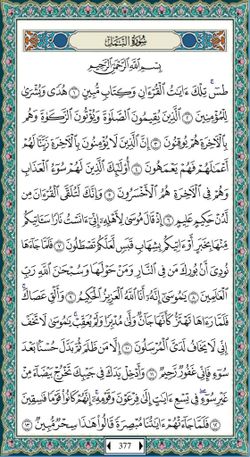 سُورَةُ النَّمْلِ
بِسْمِ اللَّهِ الرَّحْمَٰنِ الرَّحِيمِ
طسٓ ۚ تِلْكَ ءَايَٰتُ ٱلْقُرْءَانِ وَكِتَابٍ مُّبِينٍ ١ هُدًى وَبُشْرَىٰ
لِلْمُؤْمِنِينَ ٢ ٱلَّذِينَ يُقِيمُونَ ٱلصَّلَوٰةَ وَيُؤْتُونَ ٱلزَّكَوٰةَ وَهُم
بِٱلْءَاخِرَةِ هُمْ يُوقِنُونَ ٣ إِنَّ ٱلَّذِينَ لَا يُؤْمِنُونَ بِٱلْءَاخِرَةِ زَيَّنَّا لَهُمْ
أَعْمَٰلَهُمْ فَهُمْ يَعْمَهُونَ ٤ أُو۟لَٰٓئِكَ ٱلَّذِينَ لَهُمْ سُوٓءُ ٱلْعَذَابِ
وَهُمْ فِى ٱلْءَاخِرَةِ هُمُ ٱلْأَخْسَرُونَ ٥ وَإِنَّكَ لَتُلَقَّى ٱلْقُرْءَانَ مِن
لَّدُنْ حَكِيمٍ عَلِيمٍ ٦ إِذْ قَالَ مُوسَىٰ لِأَهْلِهِۦٓ إِنِّىٓ ءَانَسْتُ نَارًا سَـَٔاتِيكُم
مِّنْهَا بِخَبَرٍ أَوْ ءَاتِيكُم بِشِهَابٍ قَبَسٍ لَّعَلَّكُمْ تَصْطَلُونَ ٧ فَلَمَّا جَآءَهَا
نُودِىَ أَنۢ بُورِكَ مَن فِى ٱلنَّارِ وَمَنْ حَوْلَهَا وَسُبْحَٰنَ ٱللَّهِ رَبِّ
ٱلْعَٰلَمِينَ ٨ يَٰمُوسَىٰٓ إِنَّهُۥٓ أَنَا ٱللَّهُ ٱلْعَزِيزُ ٱلْحَكِيمُ ٩ وَأَلْقِ عَصَاكَ ۚ
فَلَمَّا رَءَاهَا تَهْتَزُّ كَأَنَّهَا جَآنٌّ وَلَّىٰ مُدْبِرًا وَلَمْ يُعَقِّبْ ۚ يَٰمُوسَىٰ لَا تَخَفْ
إِنِّى لَا يَخَافُ لَدَىَّ ٱلْمُرْسَلُونَ ١٠ إِلَّا مَن ظَلَمَ ثُمَّ بَدَّلَ حُسْنًۢا بَعْدَ
سُوٓءٍ فَإِنِّى غَفُورٌ رَّحِيمٌ ١١ وَأَدْخِلْ يَدَكَ فِى جَيْبِكَ تَخْرُجْ بَيْضَآءَ مِنْ
غَيْرِ سُوٓءٍ ۖ فِى تِسْعِ ءَايَٰتٍ إِلَىٰ فِرْعَوْنَ وَقَوْمِهِۦٓ ۚ إِنَّهُمْ كَانُوا۟ قَوْمًا فَٰسِقِينَ
١٢ فَلَمَّا جَآءَتْهُمْ ءَايَٰتُنَا مُبْصِرَةً قَالُوا۟ هَٰذَا سِحْرٌ مُّبِينٌ ١٣
377